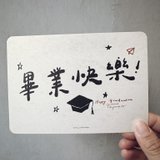 畢業快樂!
Happy Graduation